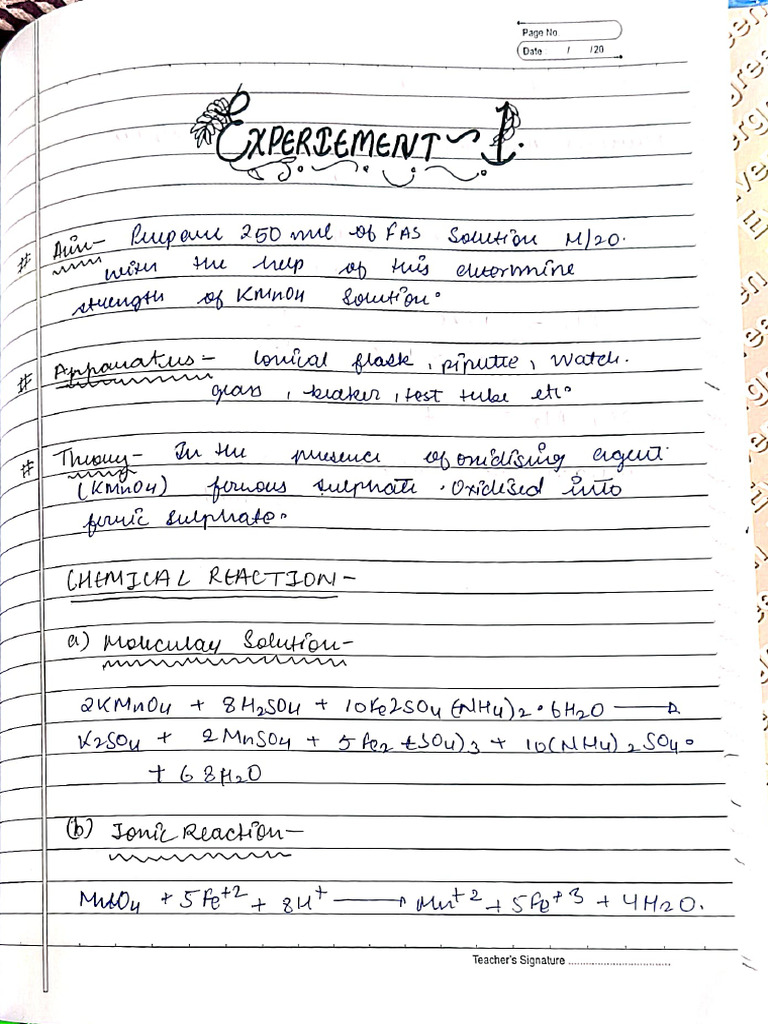 Page No
Date / /20
EXPERIEMENT-1.
# Aim- Prepare 250 ml of FAS Solution M/20.
with the help of this determine
strength of KMnO4 Solution.
# Apparatus- Conical flask, pipette, Watch.
glass, beaker, test tube etc.
# Theory- In the presence of oxidising agent
(KMnO4) ferrous sulphate. Oxidised into
ferric sulphate.
CHEMICAL REACTION-
a) Molecular Solution-
2KMnO4 + 8H2SO4 + 10Fe2SO4(NH4)2•6H2O →
K2SO4 + 2MnSO4 + 5Fe2(SO4)3 + 10(NH4)2SO4
+ 68H2O
(b) Ionic Reaction-
+ 5Fe+2 + 8H+ → Mn+2 + 5Fe+3 + 4H2O.
Teacher's Signature